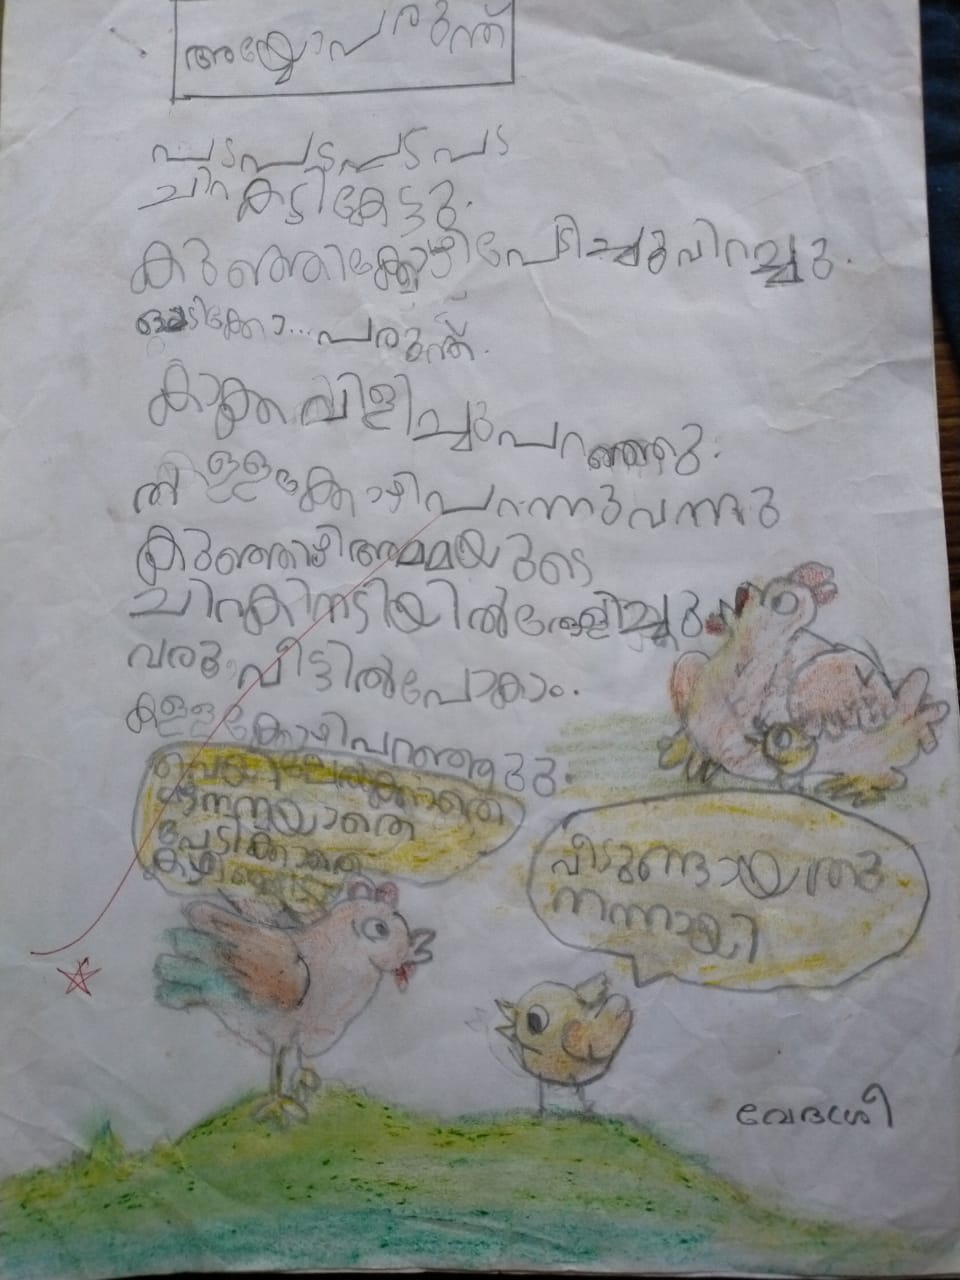 അയ്യോ പരുന്ത്
പട പട പട പട
ചിറകടി കേട്ടു.
കുഞ്ഞിക്കോഴി പേടിച്ചു വിറച്ചു.
പരുന്ത്.
കാക്ക വിളിച്ചു പറഞ്ഞു.
തള്ളക്കോഴി പറന്നു വന്നു
കുഞ്ഞിക്കോഴി അമ്മയുടെ
ചിറകിനടിയിൽ ഒളിച്ചു
വരൂ വീട്ടിൽ പോകാം.
തള്ളക്കോഴി പറഞ്ഞു.
വെയിലേൽക്കാതെ
മഴ നനയാതെ
പേടിക്കാതെ
കഴിയാം
വീടുണ്ടായതു
നന്നായി
വേദശ്രീ